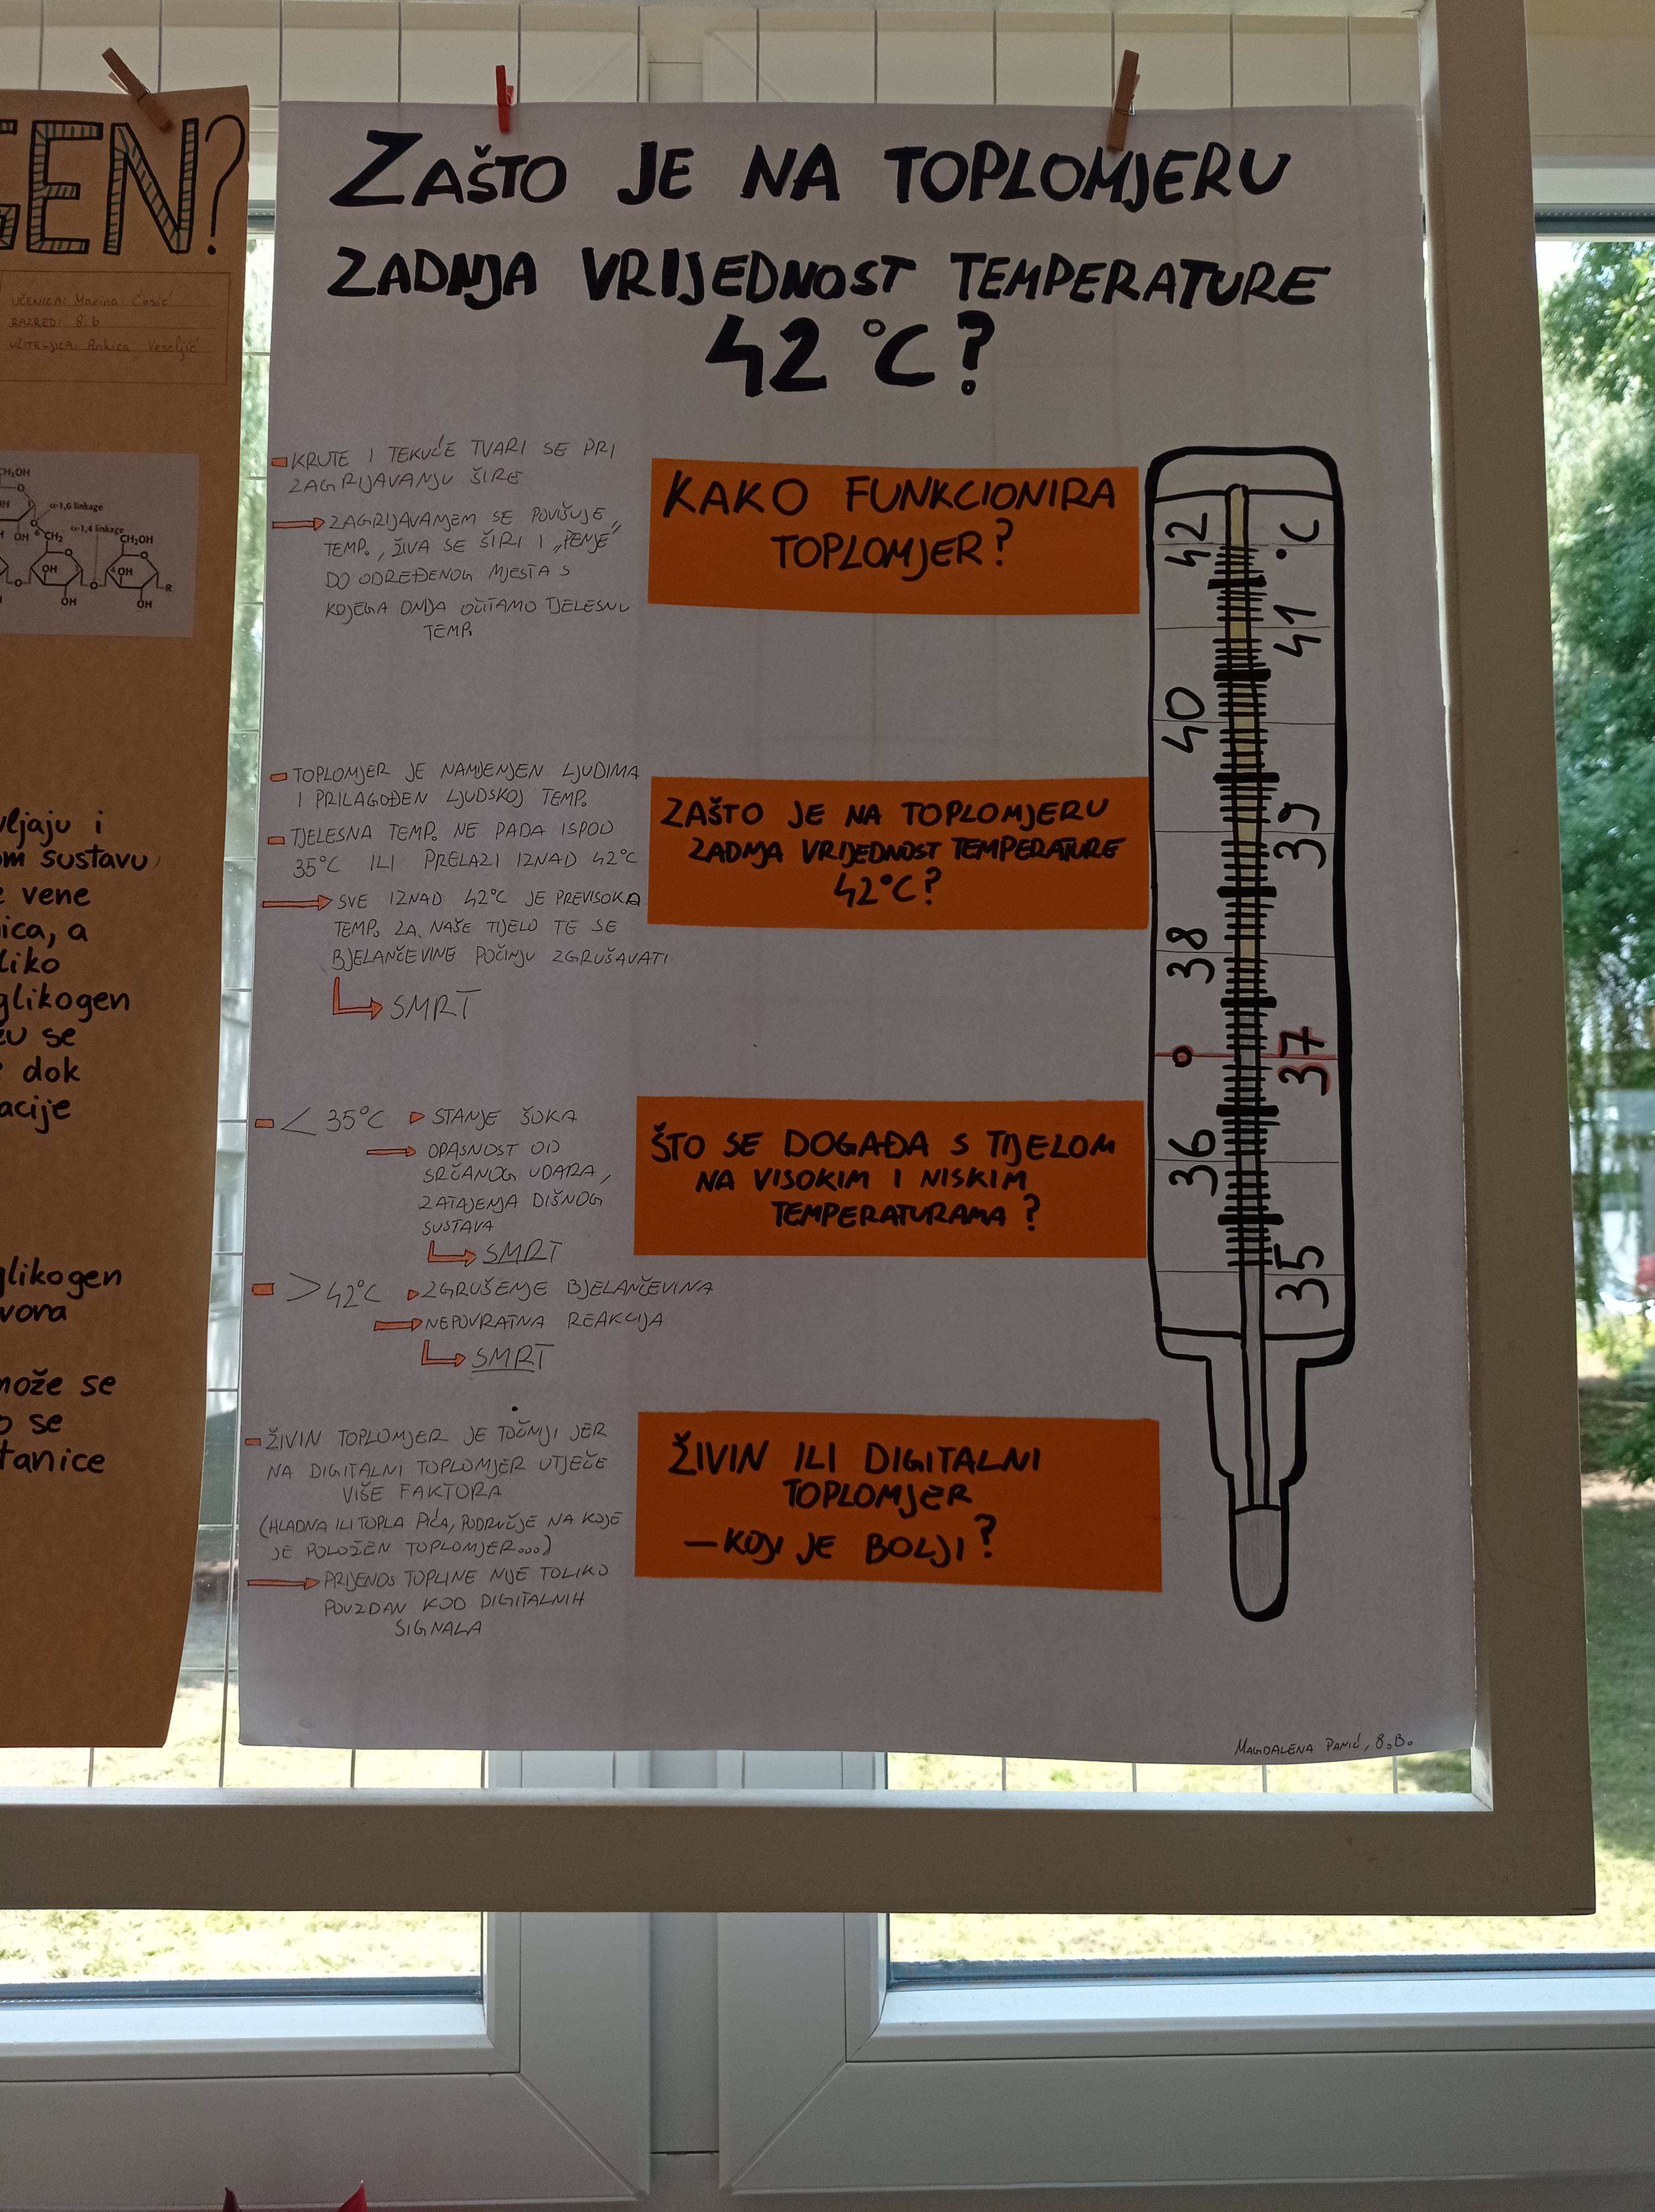 GEN?
UČENICA: Marina Ćosić
RAZRED: 8.b
UČITELJICA: Ankica Veseljić
CH₂OH
α-1,6 linkage
α-1,4 linkage
OH
CH₂
CH₂OH
OH
OH
OH
OH
R
vljaju i
om sustavu
vene
ica, a
liko
glikogen
se
dok
acije
glikogen
vora
može se
se
tanice
ZAŠTO JE NA TOPLOMJERU
ZADNJA VRIJEDNOST TEMPERATURE
42 °C?
KRUTE I TEKUĆE TVARI SE PRI
ZAGRIJAVANJU ŠIRE
ZAGRIJAVANJEM SE POVISUJE
TEMP., ŽIVA SE ŠIRI I „PENJE”
DO ODREĐENOG MJESTA S
KOJEGA ONDA OČITAMO TJELESNU
TEMP.
KAKO FUNKCIONIRA
TOPLOMJER?
- TOPLOMJER JE NAMJENJEN LJUDIMA
I PRILAGOĐEN LJUDSKOJ TEMP.
- TJELESNA TEMP. NE PADA ISPOD
35°C ILI PRELAZI IZNAD 42°C
SVE IZNAD 42°C JE PREVISOKA
TEMP. ZA NAŠE TIJELO TE SE
BJELANČEVINE POČINJU ZGRUŠAVATI
SMRT
ZAŠTO JE NA TOPLOMJERU
ZADNJA VRIJEDNOST TEMPERATURE
42°C?
- < 35°C STANJE ŠOKA
OPASNOST OD
SRČANOG UDARA,
ZATAJENJA DIŠNOG
SUSTAVA
SMRT
- > 42°C ZGRUŠENJE BJELANČEVINA
NEPOVRATNA REAKCIJA
SMRT
ŠTO SE DOGAĐA S TIJELOM
NA VISOKIM I NISKIM
TEMPERATURAMA?
- ŽIVIN TOPLOMJER JE TOČNIJI JER
NA DIGITALNI TOPLOMJER UTJEČE
VIŠE FAKTORA
(HLADNA ILI TOPLA PIĆA, PODRUČJE NA KOJE
JE POLOŽEN TOPLOMJER...)
PRIJENOS TOPLINE NIJE TOLIKO
POUZDAN KOD DIGITALNIH
SIGNALA
ŽIVIN ILI DIGITALNI
TOPLOMJER
—KOJI JE BOLJI?
42 °C
41
40
39
38
37
36
35
MAGDALENA PANIĆ, 8.B.